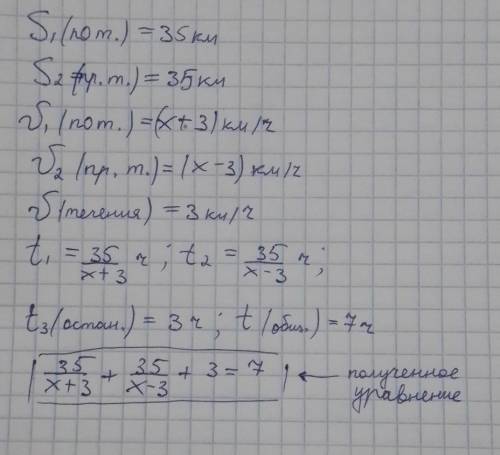 S₁ (по т.) = 35 км
S₂ (пр. т.) = 35 км
V₁ (по т.) = (x + 3) км/ч
V₂ (пр. т.) = (x - 3) км/ч
V (течения) = 3 км/ч
t₁ = 35/(x + 3) ч ; t₂ = 35/(x - 3) ч ;
t₃ (остан.) = 3 ч ; t (общ.) = 7 ч
| 35/(x + 3) + 35/(x - 3) + 3 = 7 | ← полученное
уравнение